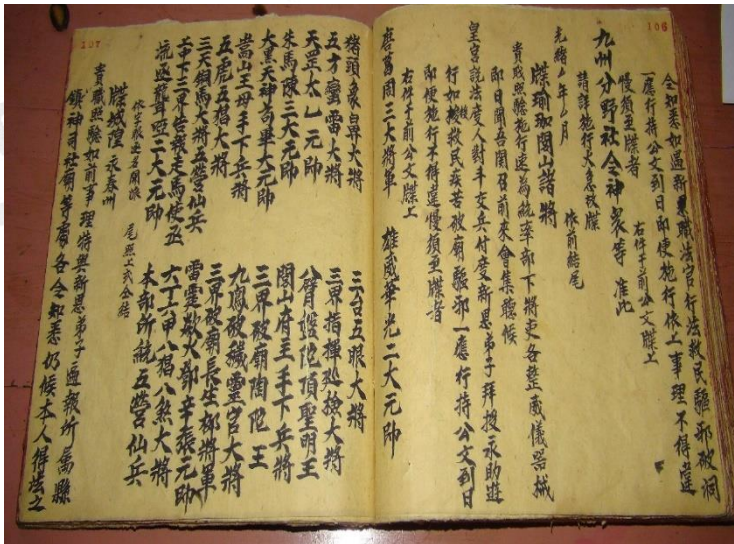 106
令知悉如遇新恩職法官行法救民驅邪破洞
一應行持公文到日即便施行依上事理不得違
慢須至牒者
右件于前公文牒上
九州分野社令神眾等 准此
請詳施行火急故牒
光緒年月 依前結尾
牒瑜珈閭山諸將
貴職照驗施行速為統率部下將吏各整威儀器械
即日開吾關召前來會集聽候
皇宮說法度人對手交兵付度新恩弟子拜授永助遊
行如梭救民疾苦破廟驅邪一應行持公文到日
即便施行不得違慢須至牒者
右件于前公文牒上
唐葛周三大將軍 雄威華光二大元帥
107
豬頭象鼻大將 三台五眼大將
五方蠻雷大將 三界指揮巡撿大將
天罡太乙元帥 八臂盤陀頂聖明王
朱馬陳三大元帥 閭山府主手下兵將
大黑天神苟畢大元帥 三界破廟闍陀王
當山王母手下兵將 九鳳破穢靈官大將
五虎五猖大將 三界破廟長生柳將軍
三天銅馬大將五營仙兵 雷霆歘火部辛張元帥
壬申下三界告我走馬使丞 六丁六甲八猖八煞大將
流巫聾啞二大元帥 本部所統五營仙兵
依宗師速召開派 尾照上式全結
牒城隍 永春州
貴職照驗如前事理特與新恩弟子遍報所屬縣
鎮神司社廟等處各令知悉仍候本人得法之